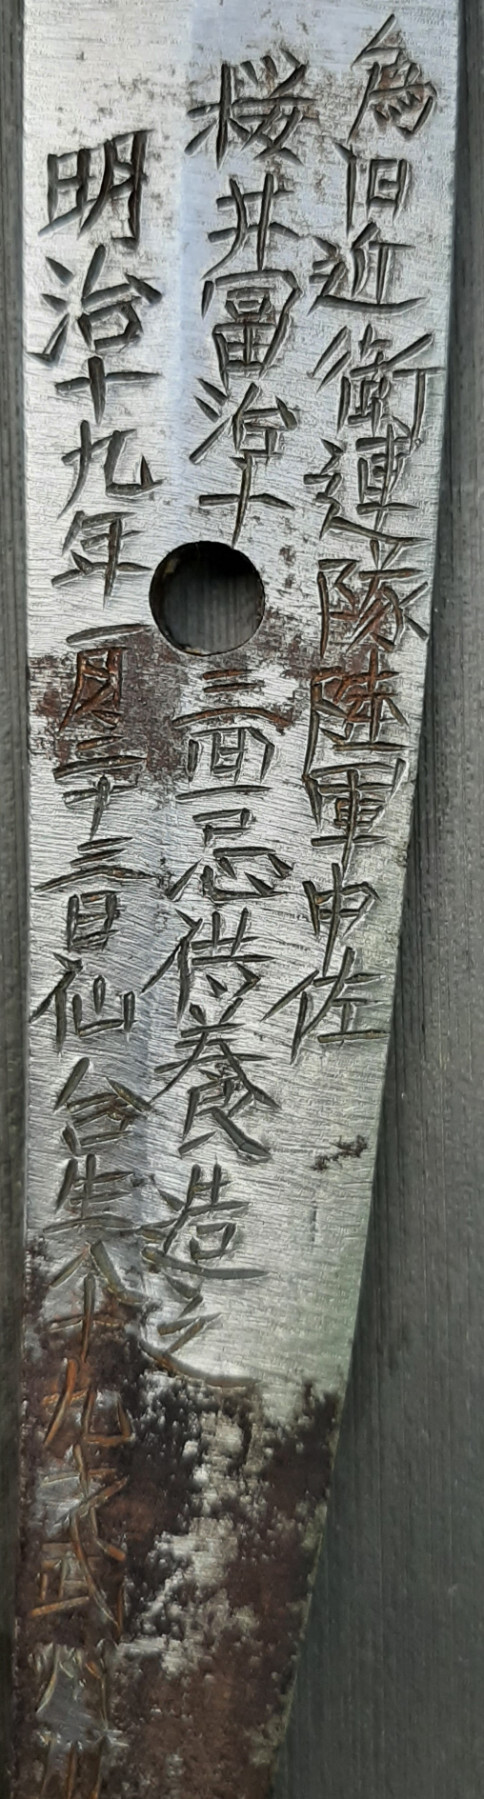 為旧近衛連隊陸軍中佐
桜井富治十三回忌供養造之
明治十九年一月二十三日仙台人十九代武